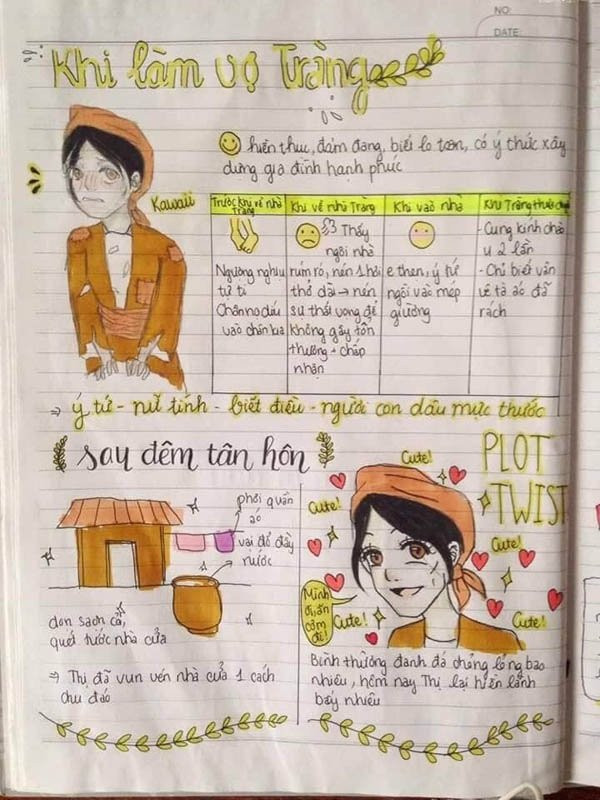 NO:
DATE:
Khi làm vợ Tràng
hiền thục, đảm đang, biết lo toan, có ý thức xây
dựng gia đình hạnh phúc
Kawaii
Trước khi về nhà
Tràng
Ngượng nghịu
tự ti
Chân nọ díu
vào chân kia
Khi về nhà Tràng
Thấy
ngôi nhà
rúm ró, nén 1 hơi
thở dài → nén
sự thất vọng để
không gây tổn
thương - chấp
nhận
Khi vào nhà
e thẹn, ý tứ
ngồi vào mép
giường
Khi Tràng
- Cung kính chào
u 2 lần
- Chỉ biết vân
vê tà áo đã
rách
⇒ ý tứ - nữ tính - biết điều - người con dâu mực thước
sau đêm tân hôn
phơi quần
áo
vại đổ đầy
nước
dọn sạch cỏ,
quét tước nhà cửa
⇒ Thị đã vun vén nhà cửa 1 cách
chu đáo
PLOT
TWIST
Cute!
Cute!
Cute!
Cute!
Cute!
Mình
ơi, ăn
cơm
đi!
Bình thường đanh đá chỏng lỏng bao
nhiêu, hôm nay Thị lại hiền lành
bấy nhiêu